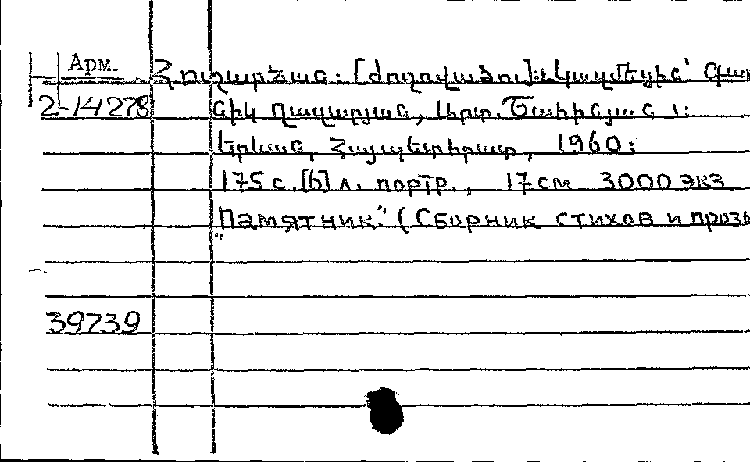 Арм.
2-14278
Հուշարձան: [ժողովածու]: Կազմեցին՝ Գա
նիկ Ղազարյան, Լիրտ. Ծարինցյան:
Երևան, Հայպետհրատ, 1960:
175 с. [6] л. портр., 17 см 3000 экз
"Памятник" (Сборник стихов и прозы
39739